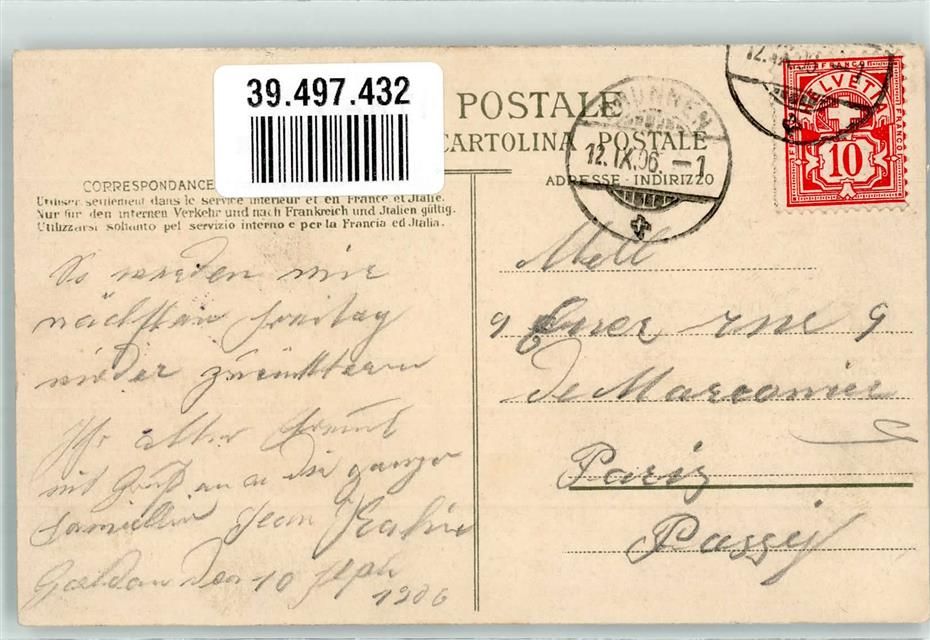 39.497.432
POSTALE
CARTOLINA POSTALE
CORRESPONDANCE
ADRESSE - INDIRIZZO
Utiliser seulement dans le service intérieur et en France et Jtalie.
Nur für den internen Verkehr und nach Frankreich und Jtalien gültig.
Utilizzarsi soltanto pel servizio interno e per la Francia ed Jtalia.
BRUNNEN
12.IX.06.-1
12.IX.
FRANCO
HELVETIA
FRANCO
10
So werden wir
nächsten Freitag
wieder
Ihr alter Freund
mit Gruß an die ganze
Jean
Goldau den 10 Sept
1906
Mell
9 rue 9
de Marconier
Paris
Passy